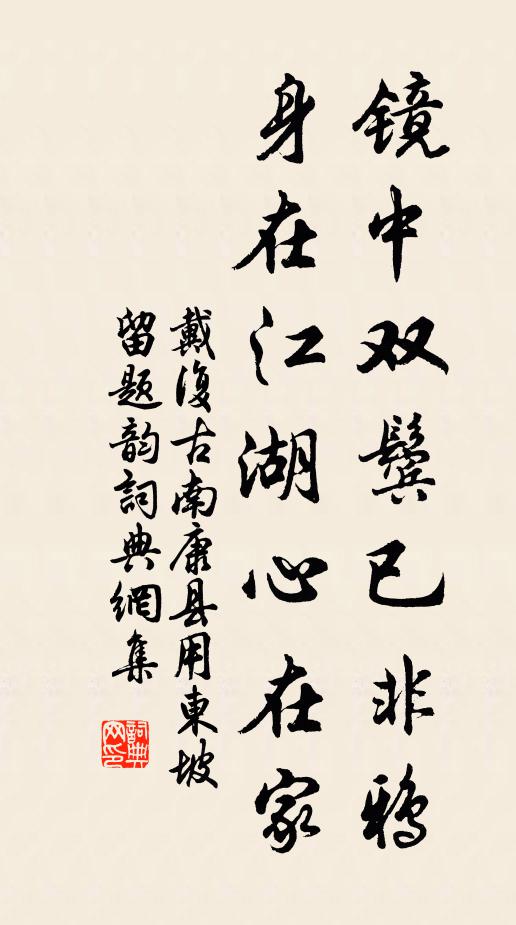 镜中双鬓已非鸦
身在江湖心在家
戴復古南康县用東坡
留题韵詞典網集
詞典
网印